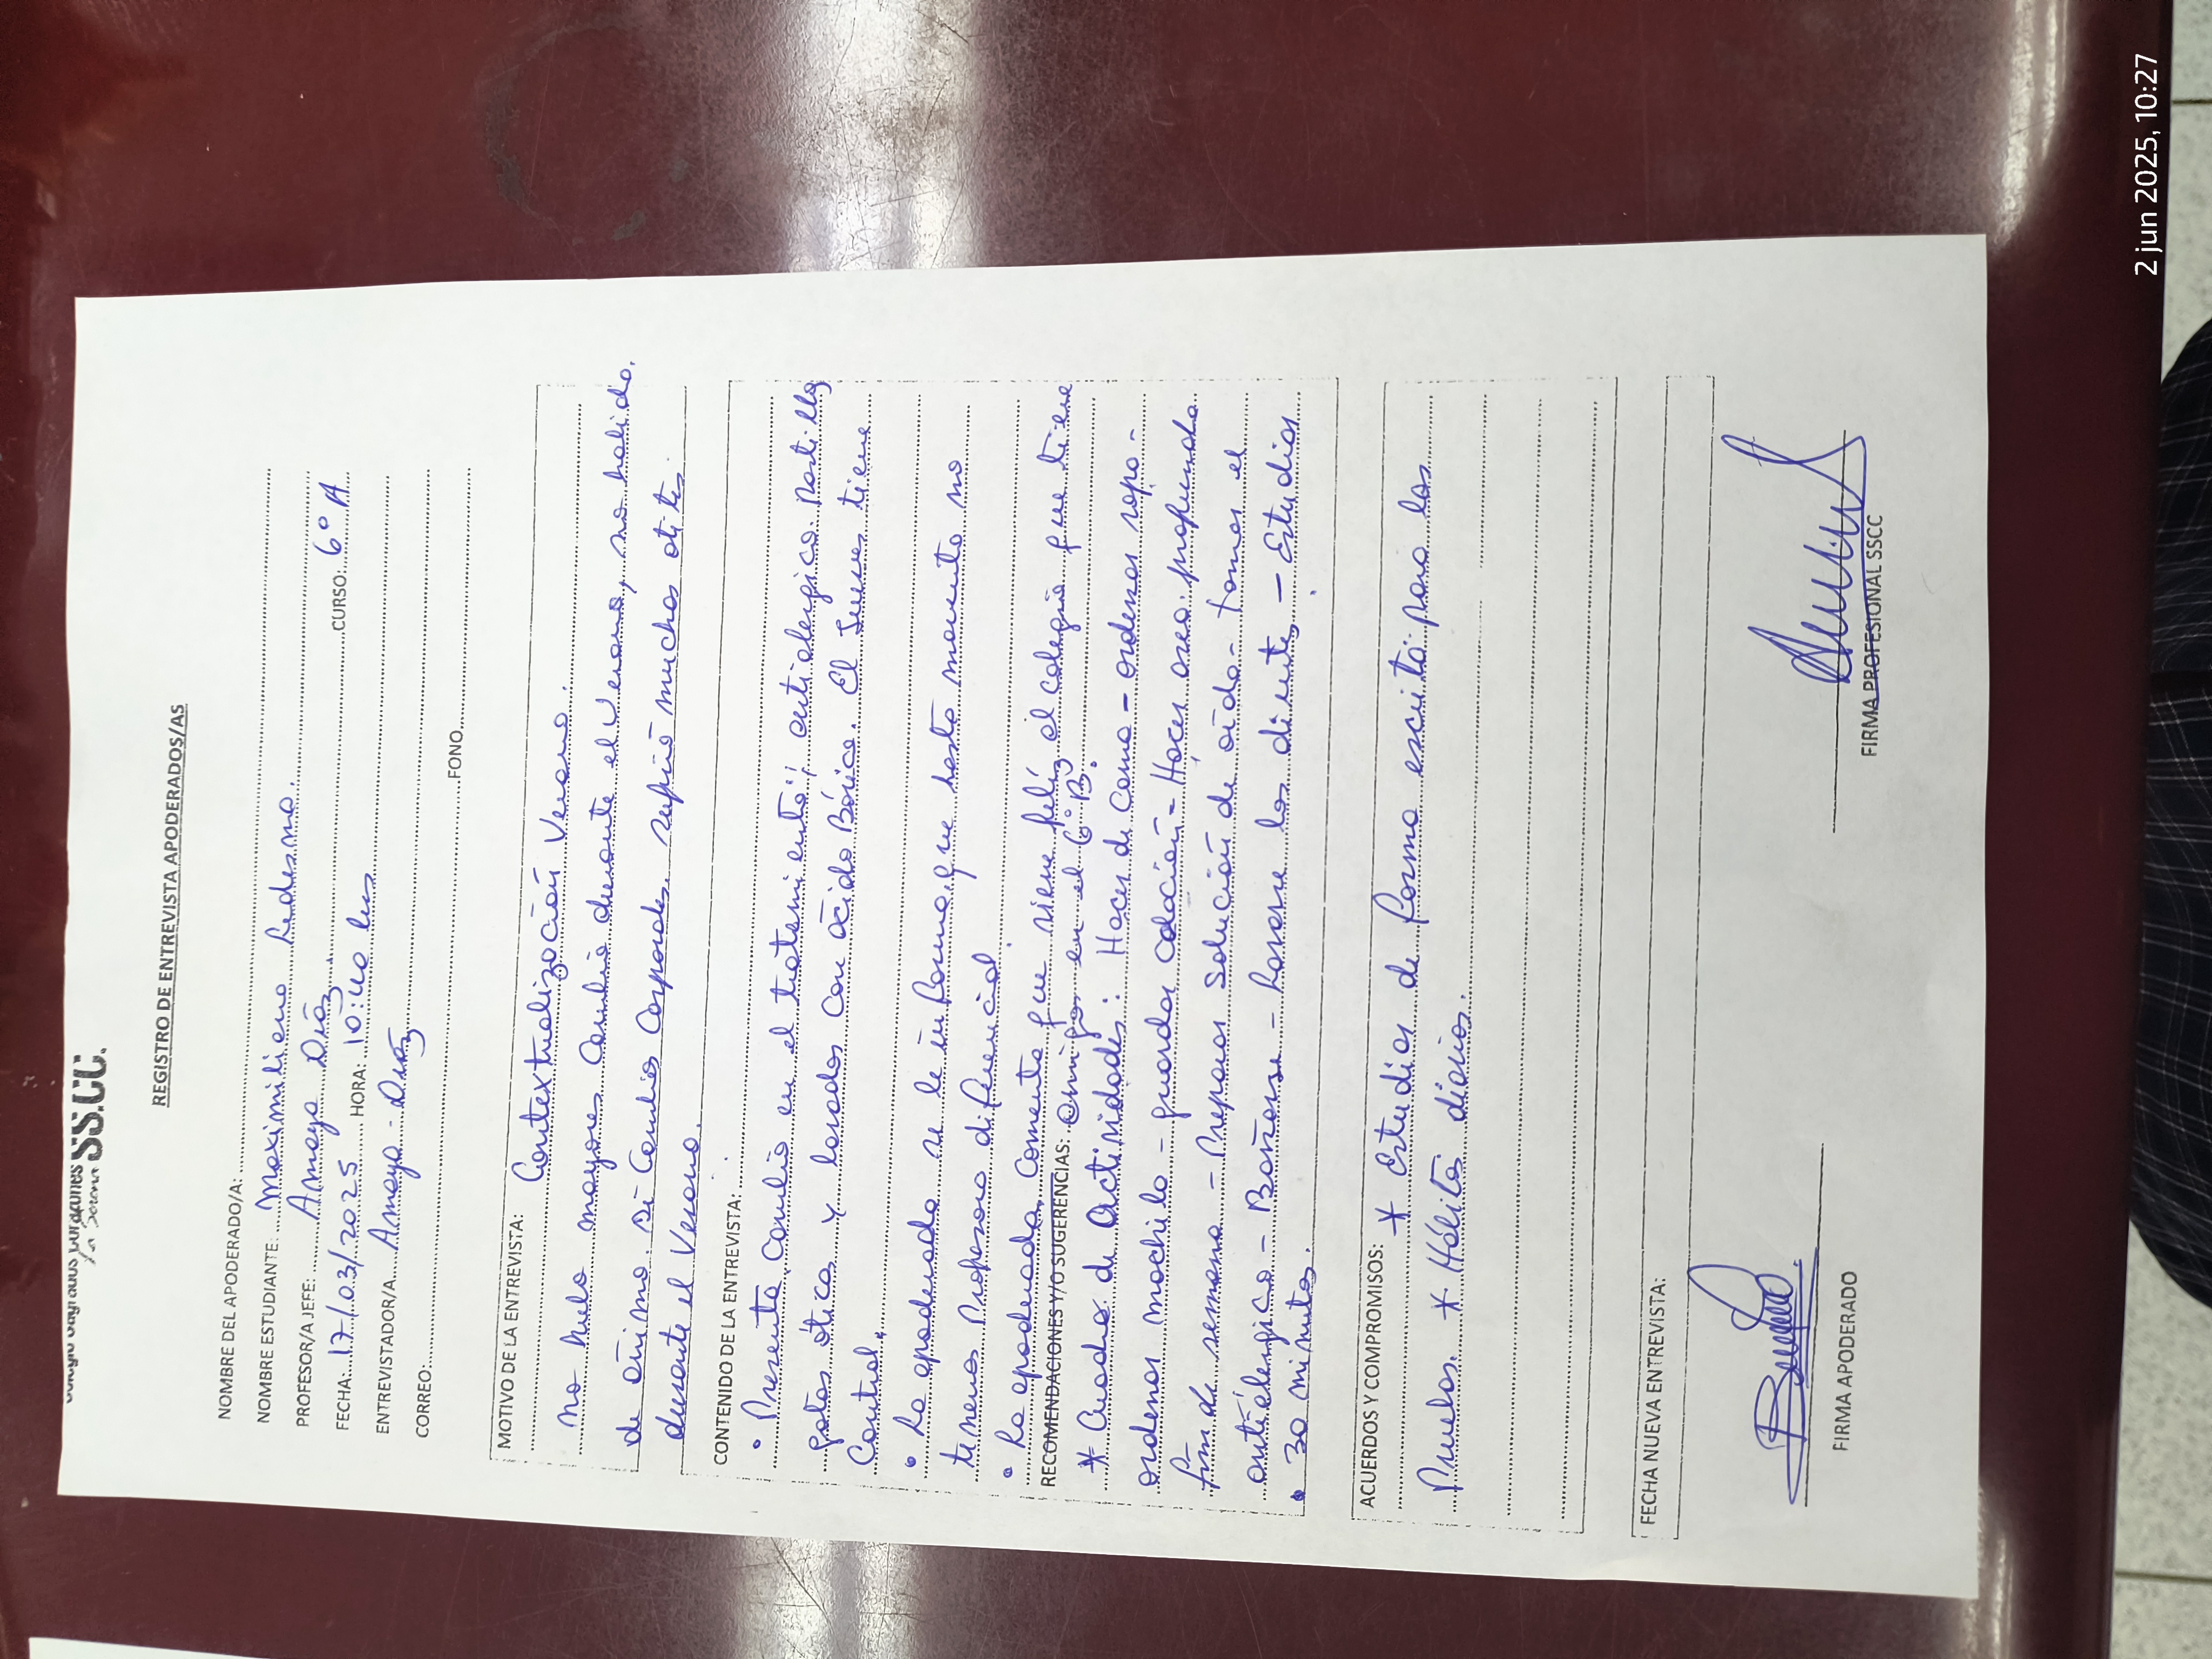 Colegio Sagrados Corazones SS.CC.
La Serena
REGISTRO DE ENTREVISTA APODERADOS/AS
NOMBRE DEL APODERADO/A:
NOMBRE ESTUDIANTE: Maximiliano Ledesma.
PROFESOR/A JEFE: Amaya Díaz
FECHA: 17/03/2025 HORA: 10:40 CURSO: 6° A
ENTREVISTADOR/A Amaya - Díaz
CORREO: FONO
MOTIVO DE LA ENTREVISTA: Contextualización Verano.
No hubo mayores cambio durante el verano, no habido
de ánimo. Si Cambios Corporales. sufrió muchas otitis
durante el Verano.
CONTENIDO DE LA ENTREVISTA:
• Presenta Cambio en el tratamiento; antialergico Pastillas
gotas ótica y lavados con ácido Bórico. El Jueves tiene
Control.
• La apoderada se le informa que hasta momento no
tenemos Profesora diferencial
• La apoderada comenta que viene feliz al colegio que tiene
RECOMENDACIONES Y/O SUGERENCIAS: amigos en el 6° B.
* Cuadro de Actividades: Hacer la Cama - ordenar ropa -
ordenar mochila - guardar colación - Hacer aseo profundo
fin de semana - Preparar Solución de oído - tomar el
antialergico - Bañarse - Lavarse los dientes - Estudiar
• 30 minutos.
ACUERDOS Y COMPROMISOS: * Estudiar de forma escrita para las
Pruebas. * Hábitos diarios.
FECHA NUEVA ENTREVISTA:
FIRMA APODERADO
FIRMA PROFESIONAL SSCC
2 jun 2025, 10:27